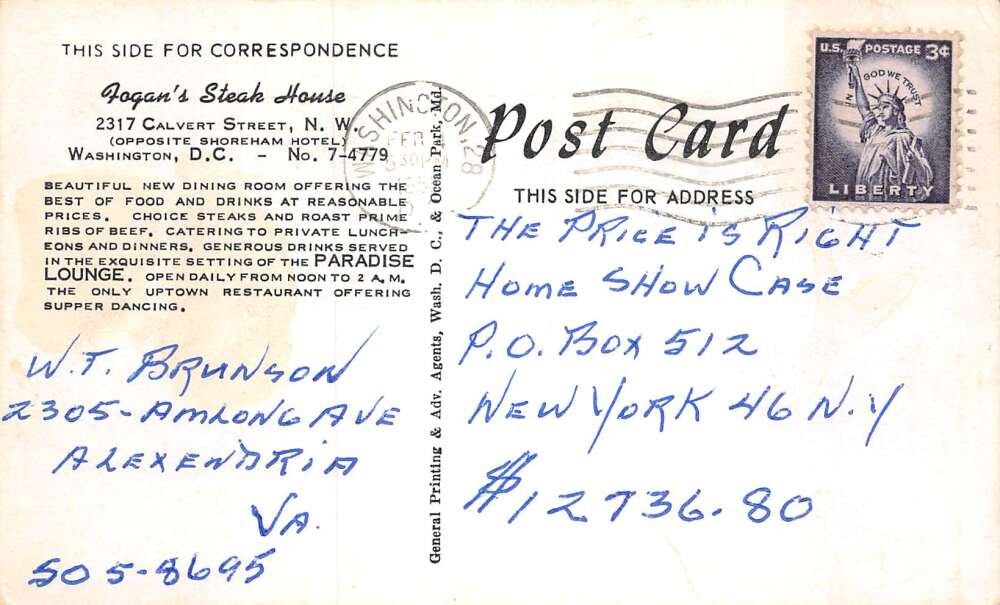 THIS SIDE FOR CORRESPONDENCE
Fogan's Steak House
2317 CALVERT STREET, N. W.
(OPPOSITE SHOREHAM HOTEL)
WASHINGTON, D.C. - No. 7-4779
BEAUTIFUL NEW DINING ROOM OFFERING THE
BEST OF FOOD AND DRINKS AT REASONABLE
PRICES. CHOICE STEAKS AND ROAST PRIME
RIBS OF BEEF. CATERING TO PRIVATE LUNCH-
EONS AND DINNERS. GENEROUS DRINKS SERVED
IN THE EXQUISITE SETTING OF THE PARADISE
LOUNGE. OPEN DAILY FROM NOON TO 2 A.M.
THE ONLY UPTOWN RESTAURANT OFFERING
SUPPER DANCING.
W.T. BRUNSON
2305-AMLONG AVE
ALEXENDRIA
VA.
SO 5-8695
General Printing & Adv. Agents, Wash. D. C., & Ocean Park, Md.
WASHINGTON, 28
FEB
Post Card
THIS SIDE FOR ADDRESS
U.S. POSTAGE 3¢
IN GOD WE TRUST
LIBERTY
THE PRICE IS RIGHT
HOME SHOW CASE
P.O. BOX 512
NEW YORK 46 N.Y
$12736.80